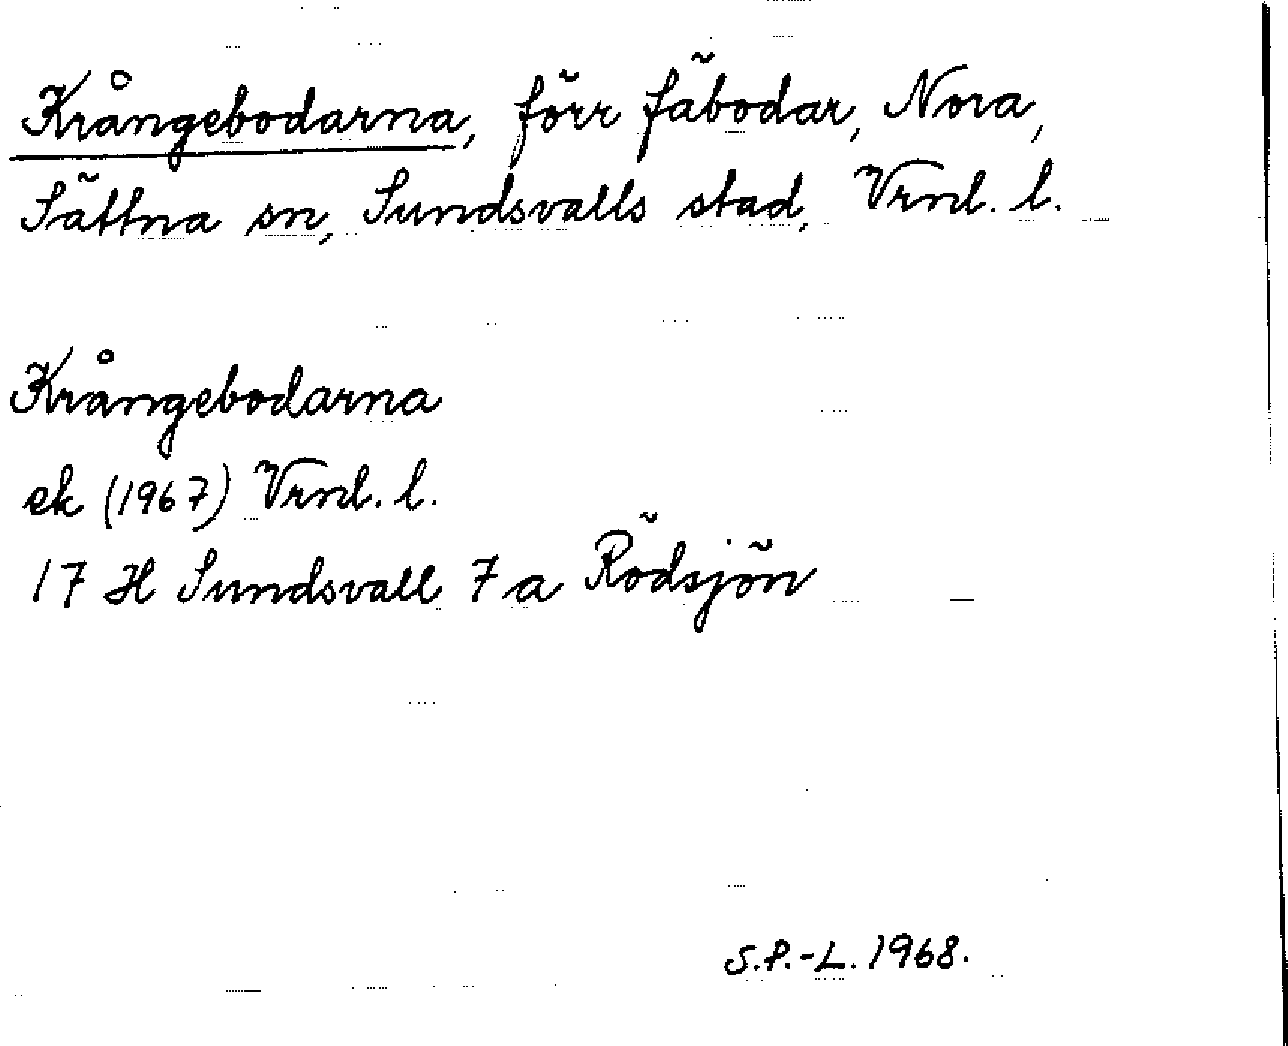 Krångebodarna, förr fäbodar, Nora,
Sättna sn, Sundsvalls stad, Vrnl. l.
Krångebodarna
ek (1967) Vrnl. l.
17 H Sundsvall 7 a Rödsjön
S.P.-L. 1968.